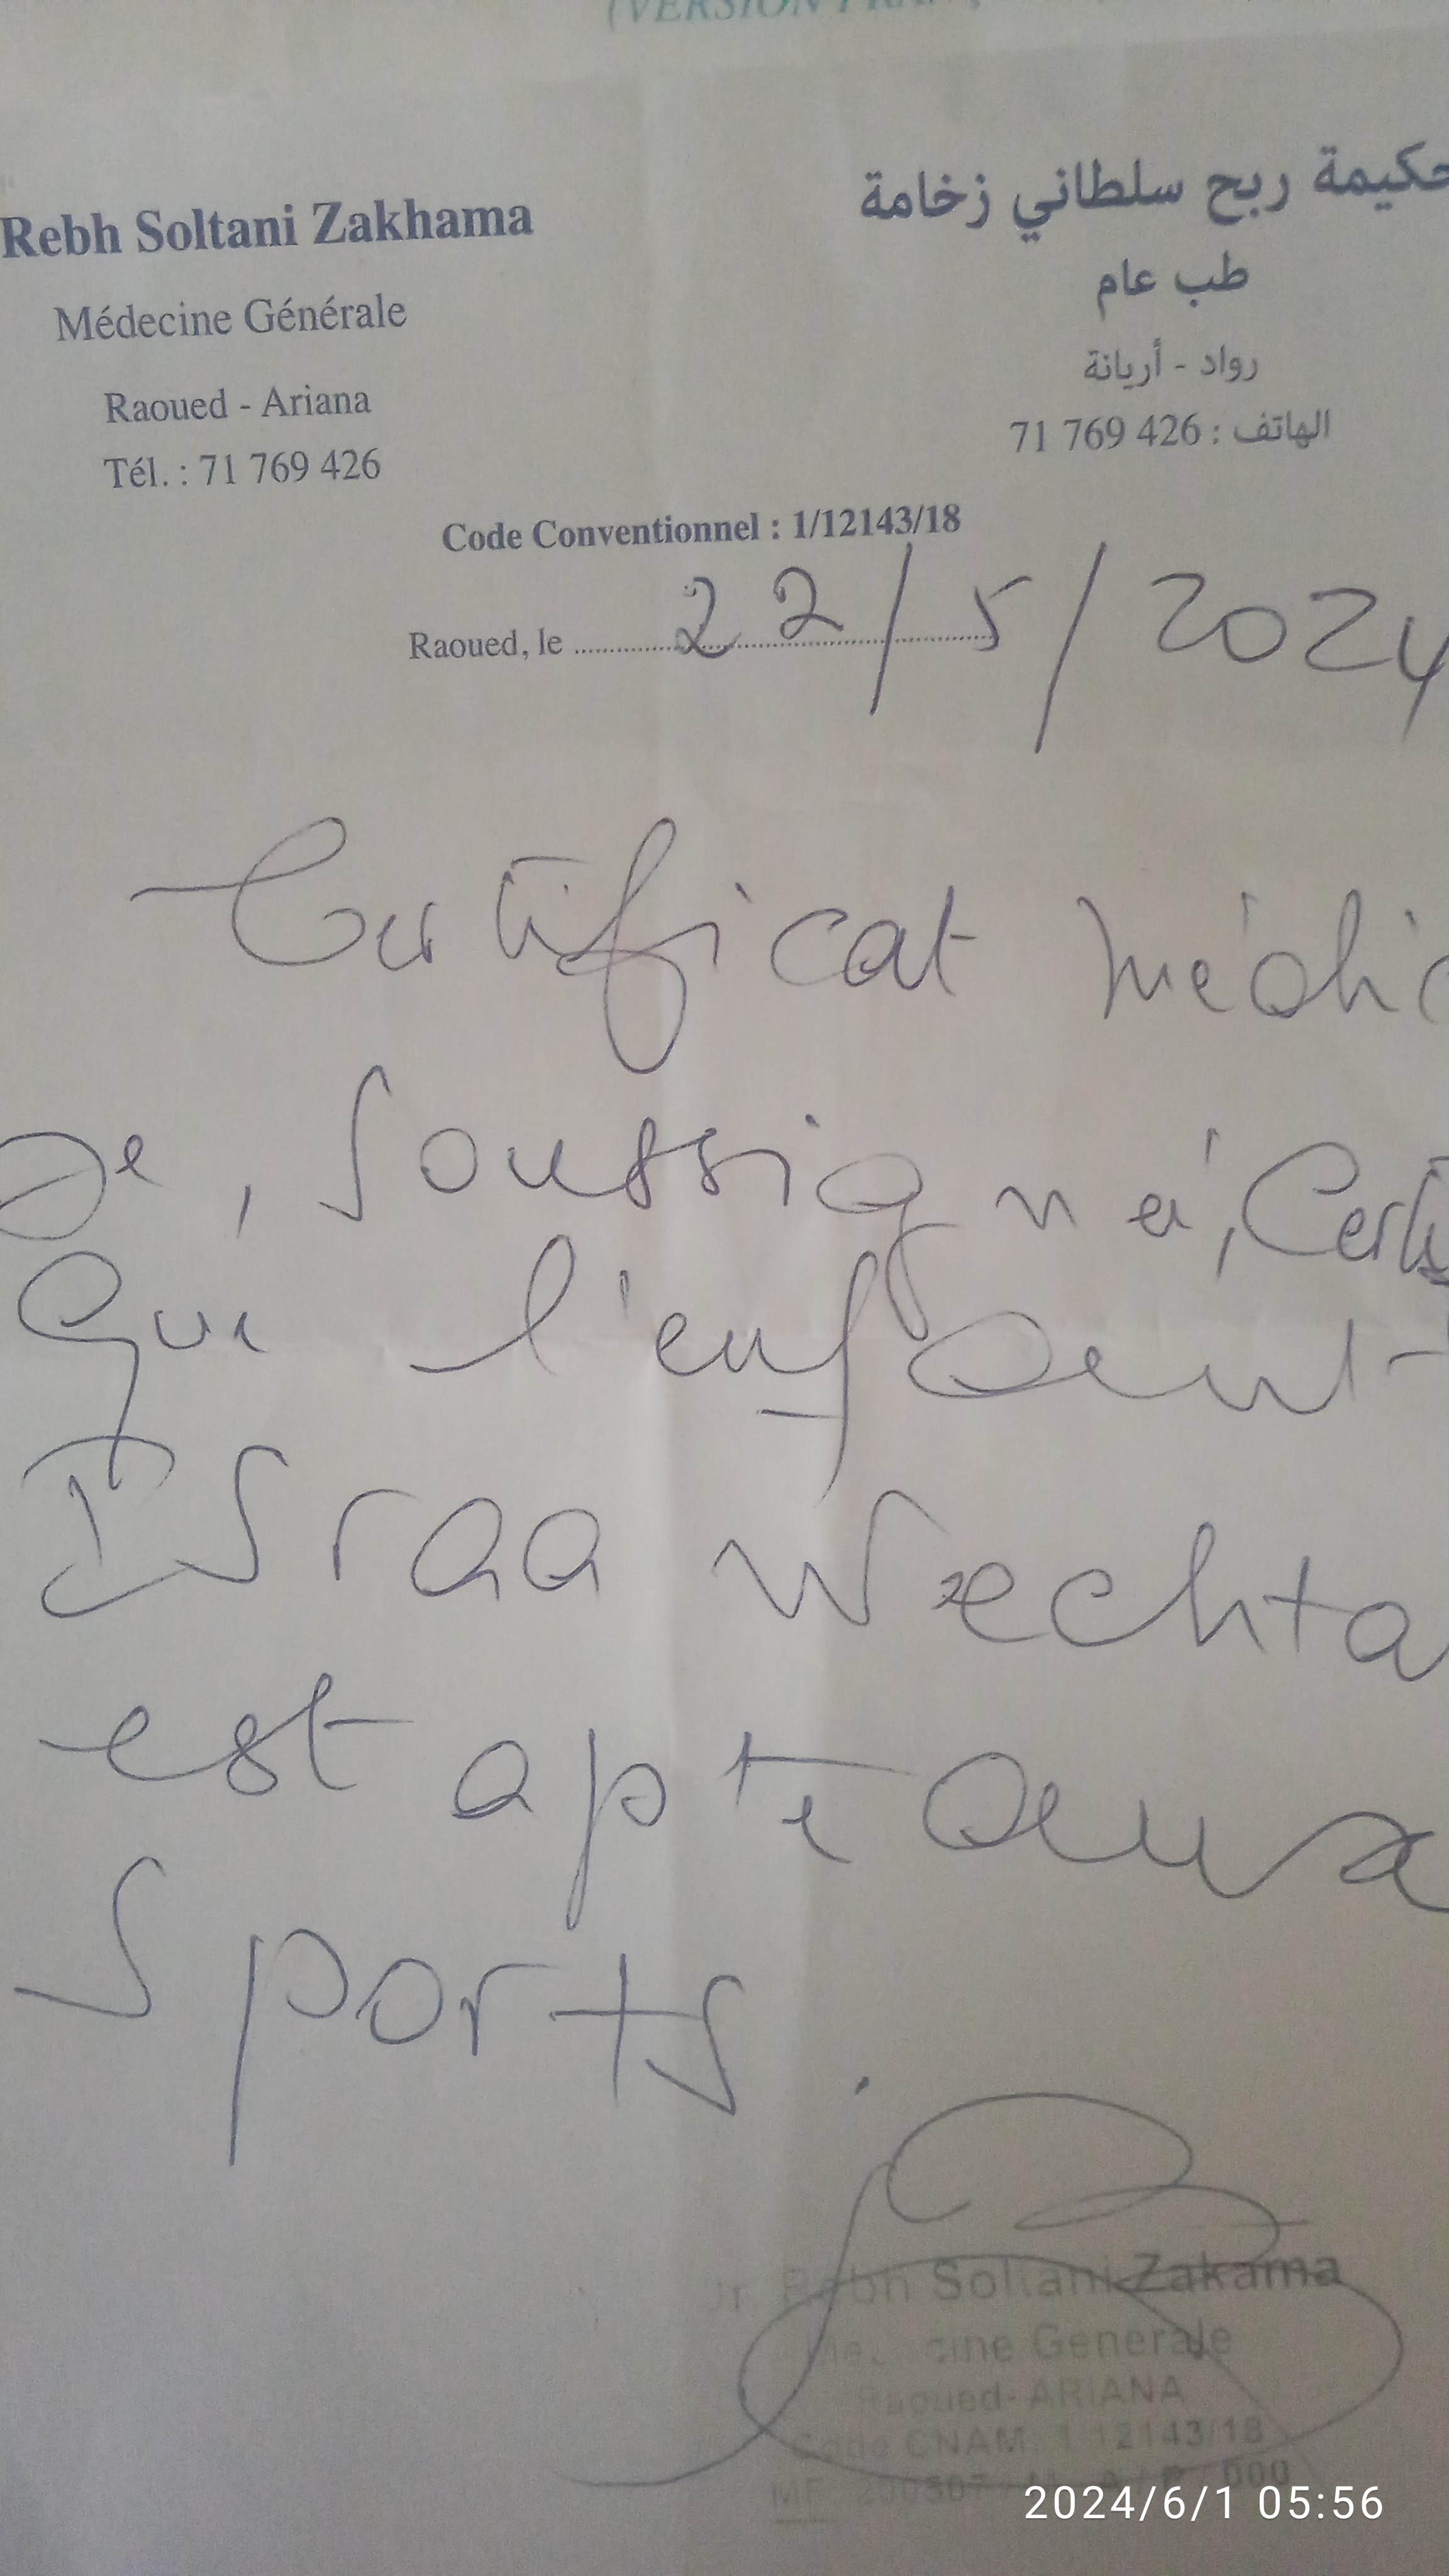 (VERSION FRAN
Rebh Soltani Zakhama
حكيمة ربح سلطاني زخامة
Médecine Générale
طب عام
Raoued - Ariana
رواد - أريانة
Tél. : 71 769 426
الهاتف : 426 769 71
Code Conventionnel : 1/12143/18
Raoued, le 22/5/2024
Certificat médic
Je, Soussigné, Certi
Que l'enfant
Israa Wechta
est apte aux
Sports.
Dr Rebh Soltani Zakama
Medecine Generale
Raoued- ARIANA
Code CNAM 1 12143/18
MF 000
2024/6/1 05:56